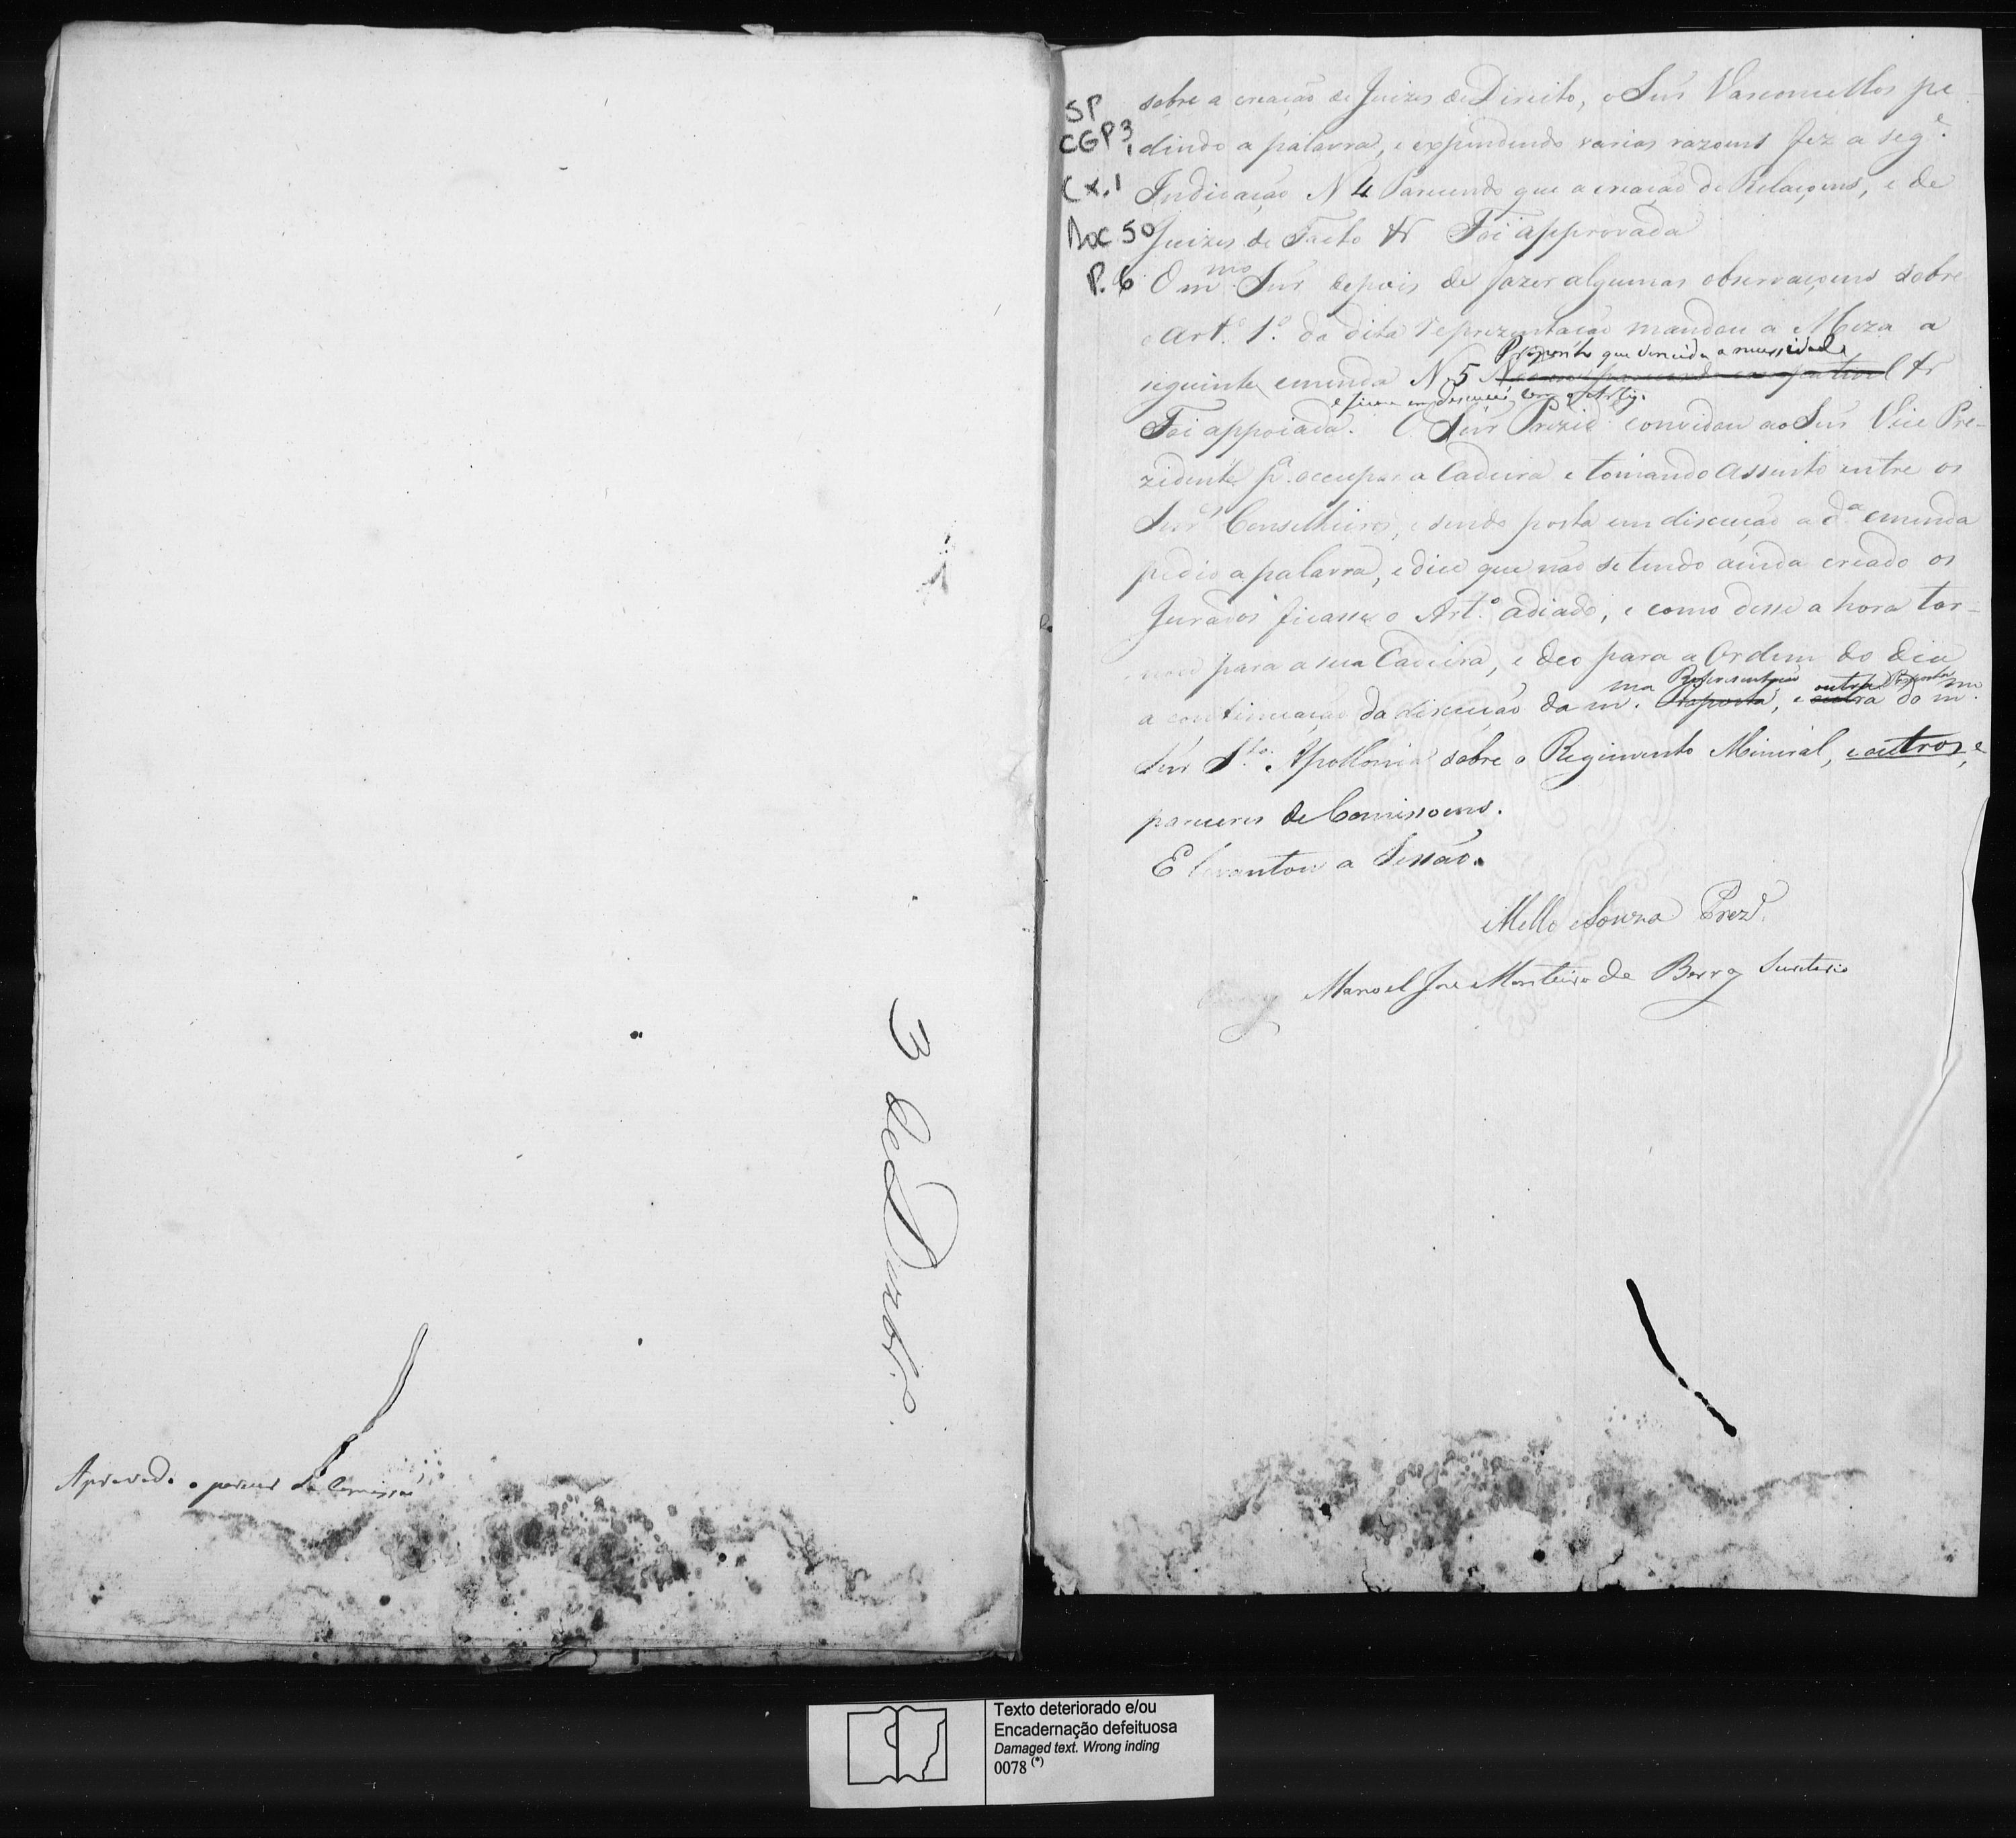 3 de Dezbro.
Aprovado o parecer da Comissão
SP
CGP 3,
Cx. 1
Doc 50
P. 6
sobre a creação de Juizes de Direito, o Snr Vasconcellos pe
dindo a palavra, e expendendo varias razoens fez a sege.
Indicação N 4 Parecendo que a creação de Relaçoens, e de
Juizes de Facto &r Foi approvada
O mmo. Snr depois de fazer algumas observaçoens sobre
o Arto. 1o. da dita reprezentação mandou a Meza a
Proponho que vencida a necessidade
seguinte emenda N. 5 &r
e fique em discução com o Artigo.
Foi appoiada. O Snr Prezide convidou ao Snr Vice Pre-
zidente pa. occupar a Cadeira e tomando assento entre os
Snrs Conselheiros, e sendo posta em discução a da emenda
pedio a palavra, e dice que não se tendo ainda creado os
Jurados ficasse o Arto. adiado, e como desse a hora tor-
nou para a sua Cadeira, e deo para a Ordem do dia
Representação outra Proposta
a continuação da discução da mma. Proposta, e outra do mmo.
Snr Sta. Apollonia sobre o Regimento Mineral, e outros, e
pareceres de Comissoens.
E levantou a Sessão.
Mello e Souza Prezde.
Manoel Jose Monteiro de Barros Secretario
Texto deteriorado e/ou
Encadernação defeituosa
Damaged text. Wrong inding
0078 (*)